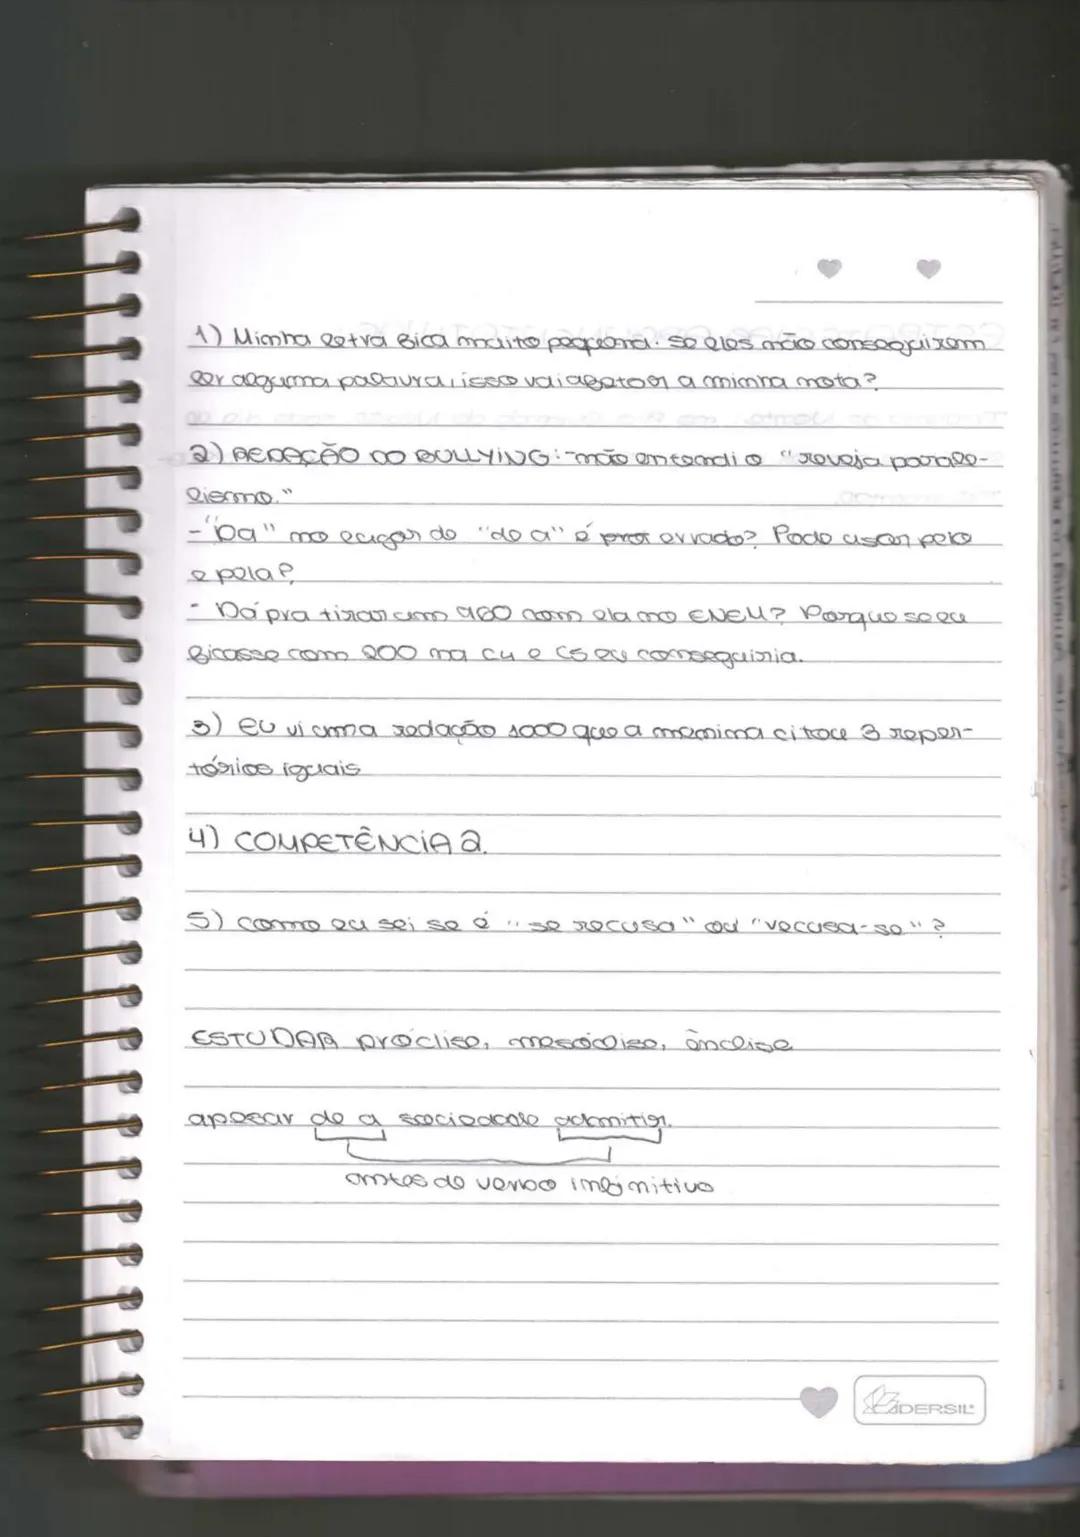 1) Minha letra fica muito pequena. se eles não conseguirem
ler alguma palavra, isso vai afetar a minha nota?
2) REDAÇÃO DO BULLYING: - não entendi o "reveja parale-
lismo."
- "Da" no lugar de "de a" é errado? Pode usar pelo
e pela?
- Dá pra tirar um 960 com ela no ENEM? Porque se eu
ficasse com 200 na C4 e C5 eu conseguiria.
3) eu vi uma redação 1000 que a menina citou 3 reper-
tórios iguais
4) COMPETÊNCIA 2.
5) como eu sei se é "se recusa" ou "recusa-se"?
ESTUDAR próclise, mesóclise, ênclise
apesar de a sociedade admitir.
antes de verbo infinitivo
ADERSIL